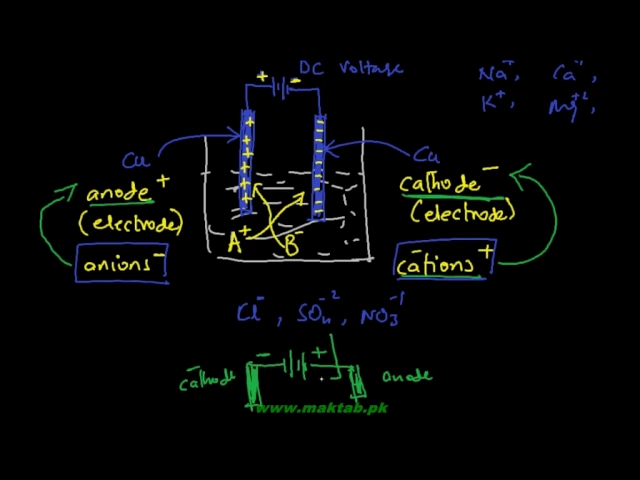 + - DC Voltage
Na⁺, Ca⁺²,
K⁺, Mg⁺²,
Cu
Cu
anode⁺
(electrode)
anions⁻
A⁺ B⁻
cathode⁻
(electrode)
cations⁺
Cl⁻, SO₄⁻², NO₃⁻¹
cathode⁻ - + anode
www.maktab.pk